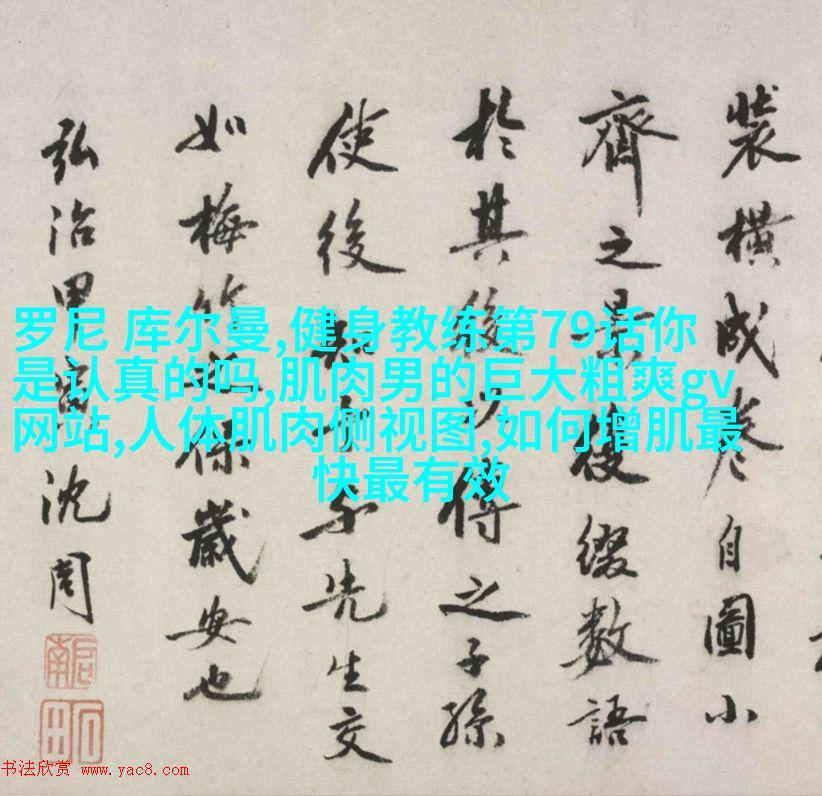 罗尼 库尔曼,健身教练第79话你
是认真的吗,肌肉男的巨大粗爽gv
网站,人体肌肉侧视图,如何增肌最
快最有效
裝橫成卷自圖小
齊之景後綴數語
於其後得之子孫
使後知余与先生交
如梅保歲安也
弘治甲寅沈周
啟南
书法欣赏 www.yac8.com